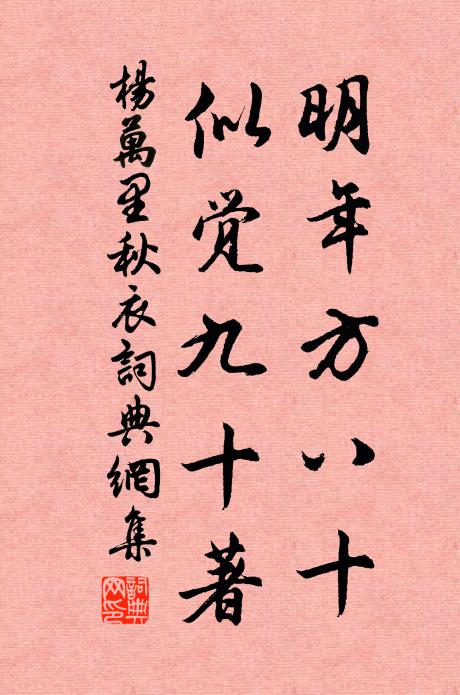 明年方八十
似觉九十著
楊萬里秋衣詞典網集
詞典网印